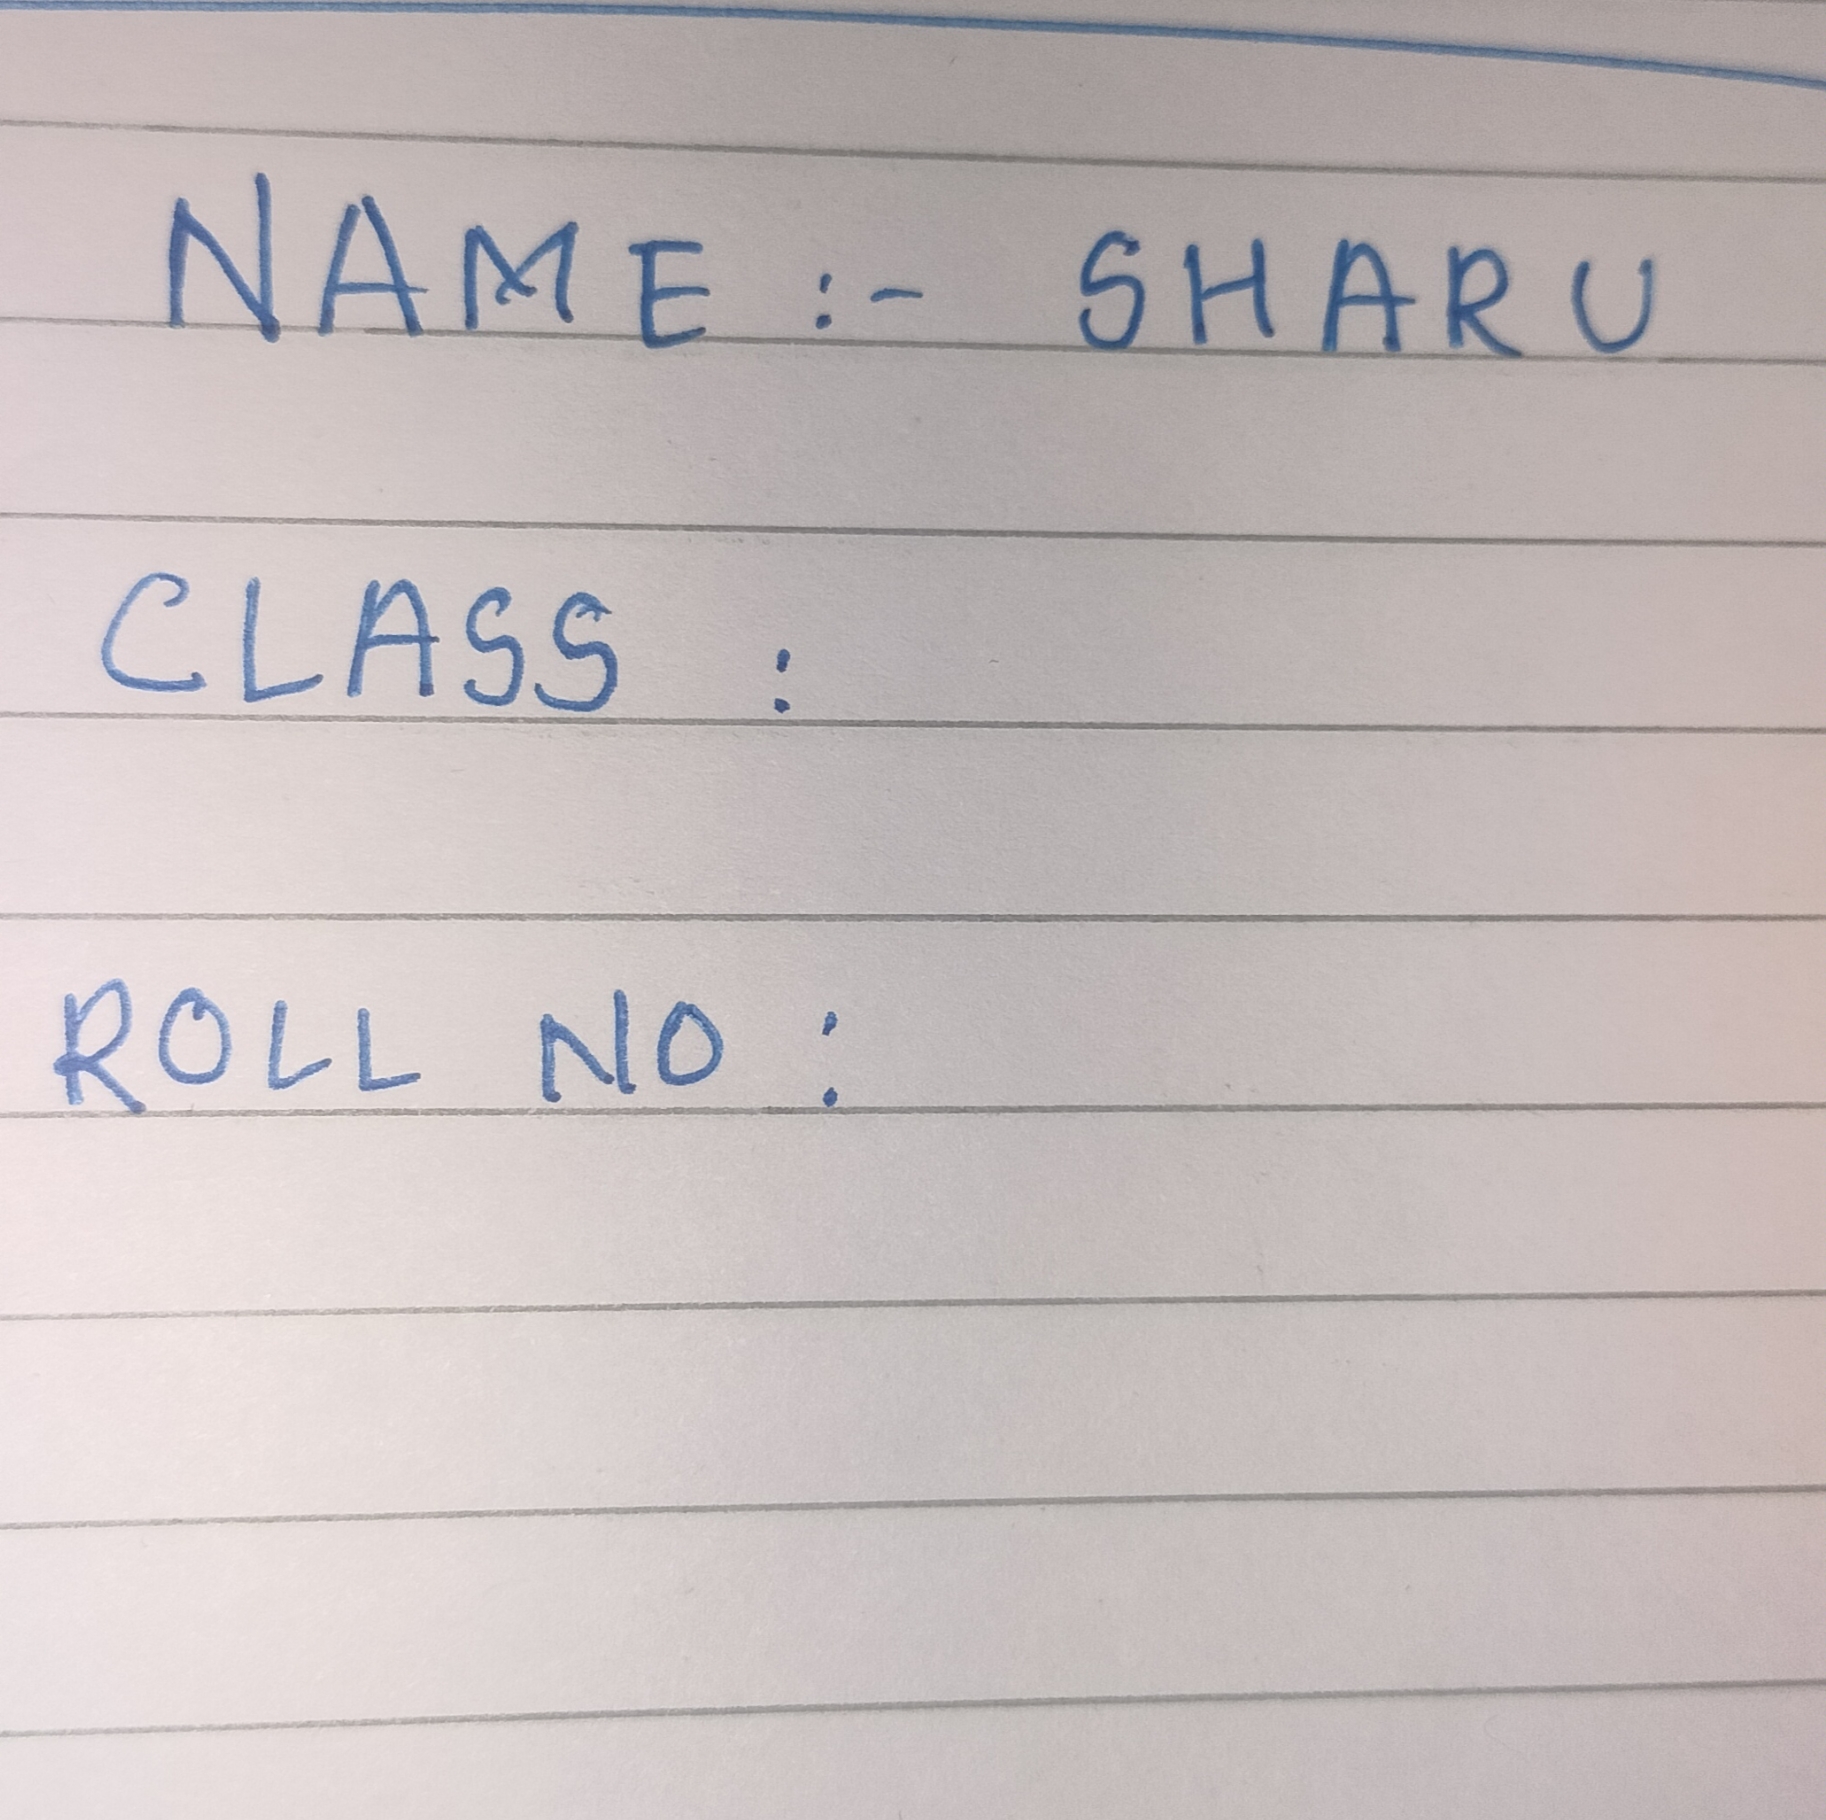 NAME :- SHARU
CLASS :
ROLL NO :